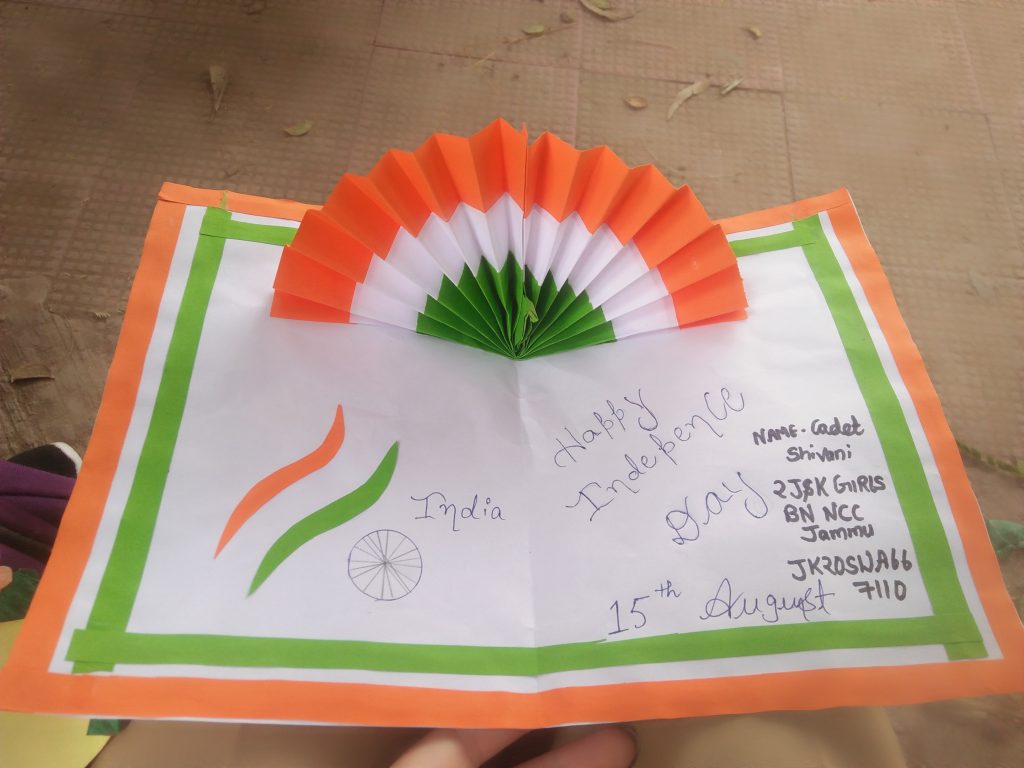 India
Happy
Indepence
Day
15th August
NAME- Cadet
Shivani
2J&K GIRLS
BN NCC
Jammu
JK20SWA66
7110